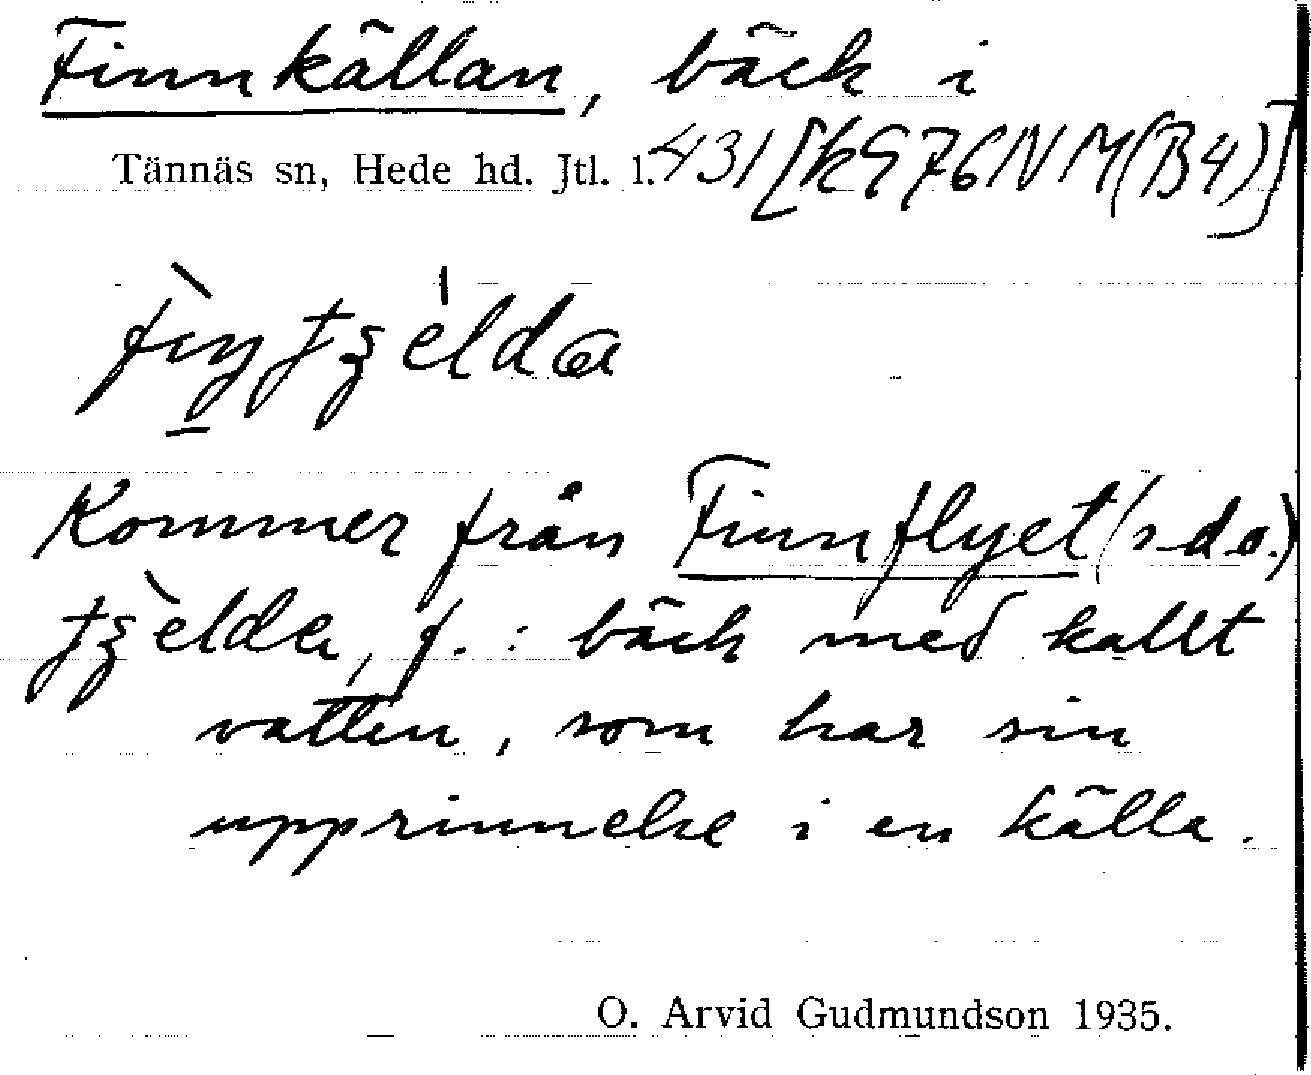 Finnkällan, bäck i
Tännäs sn, Hede hd. Jtl. l. 431 [k976NM(B4)]
Kommer från Finnflyet (s.d.o.)
f.: bäck med kallt
vatten, som har sin
upprinnelse i en källa.
O. Arvid Gudmundson 1935.